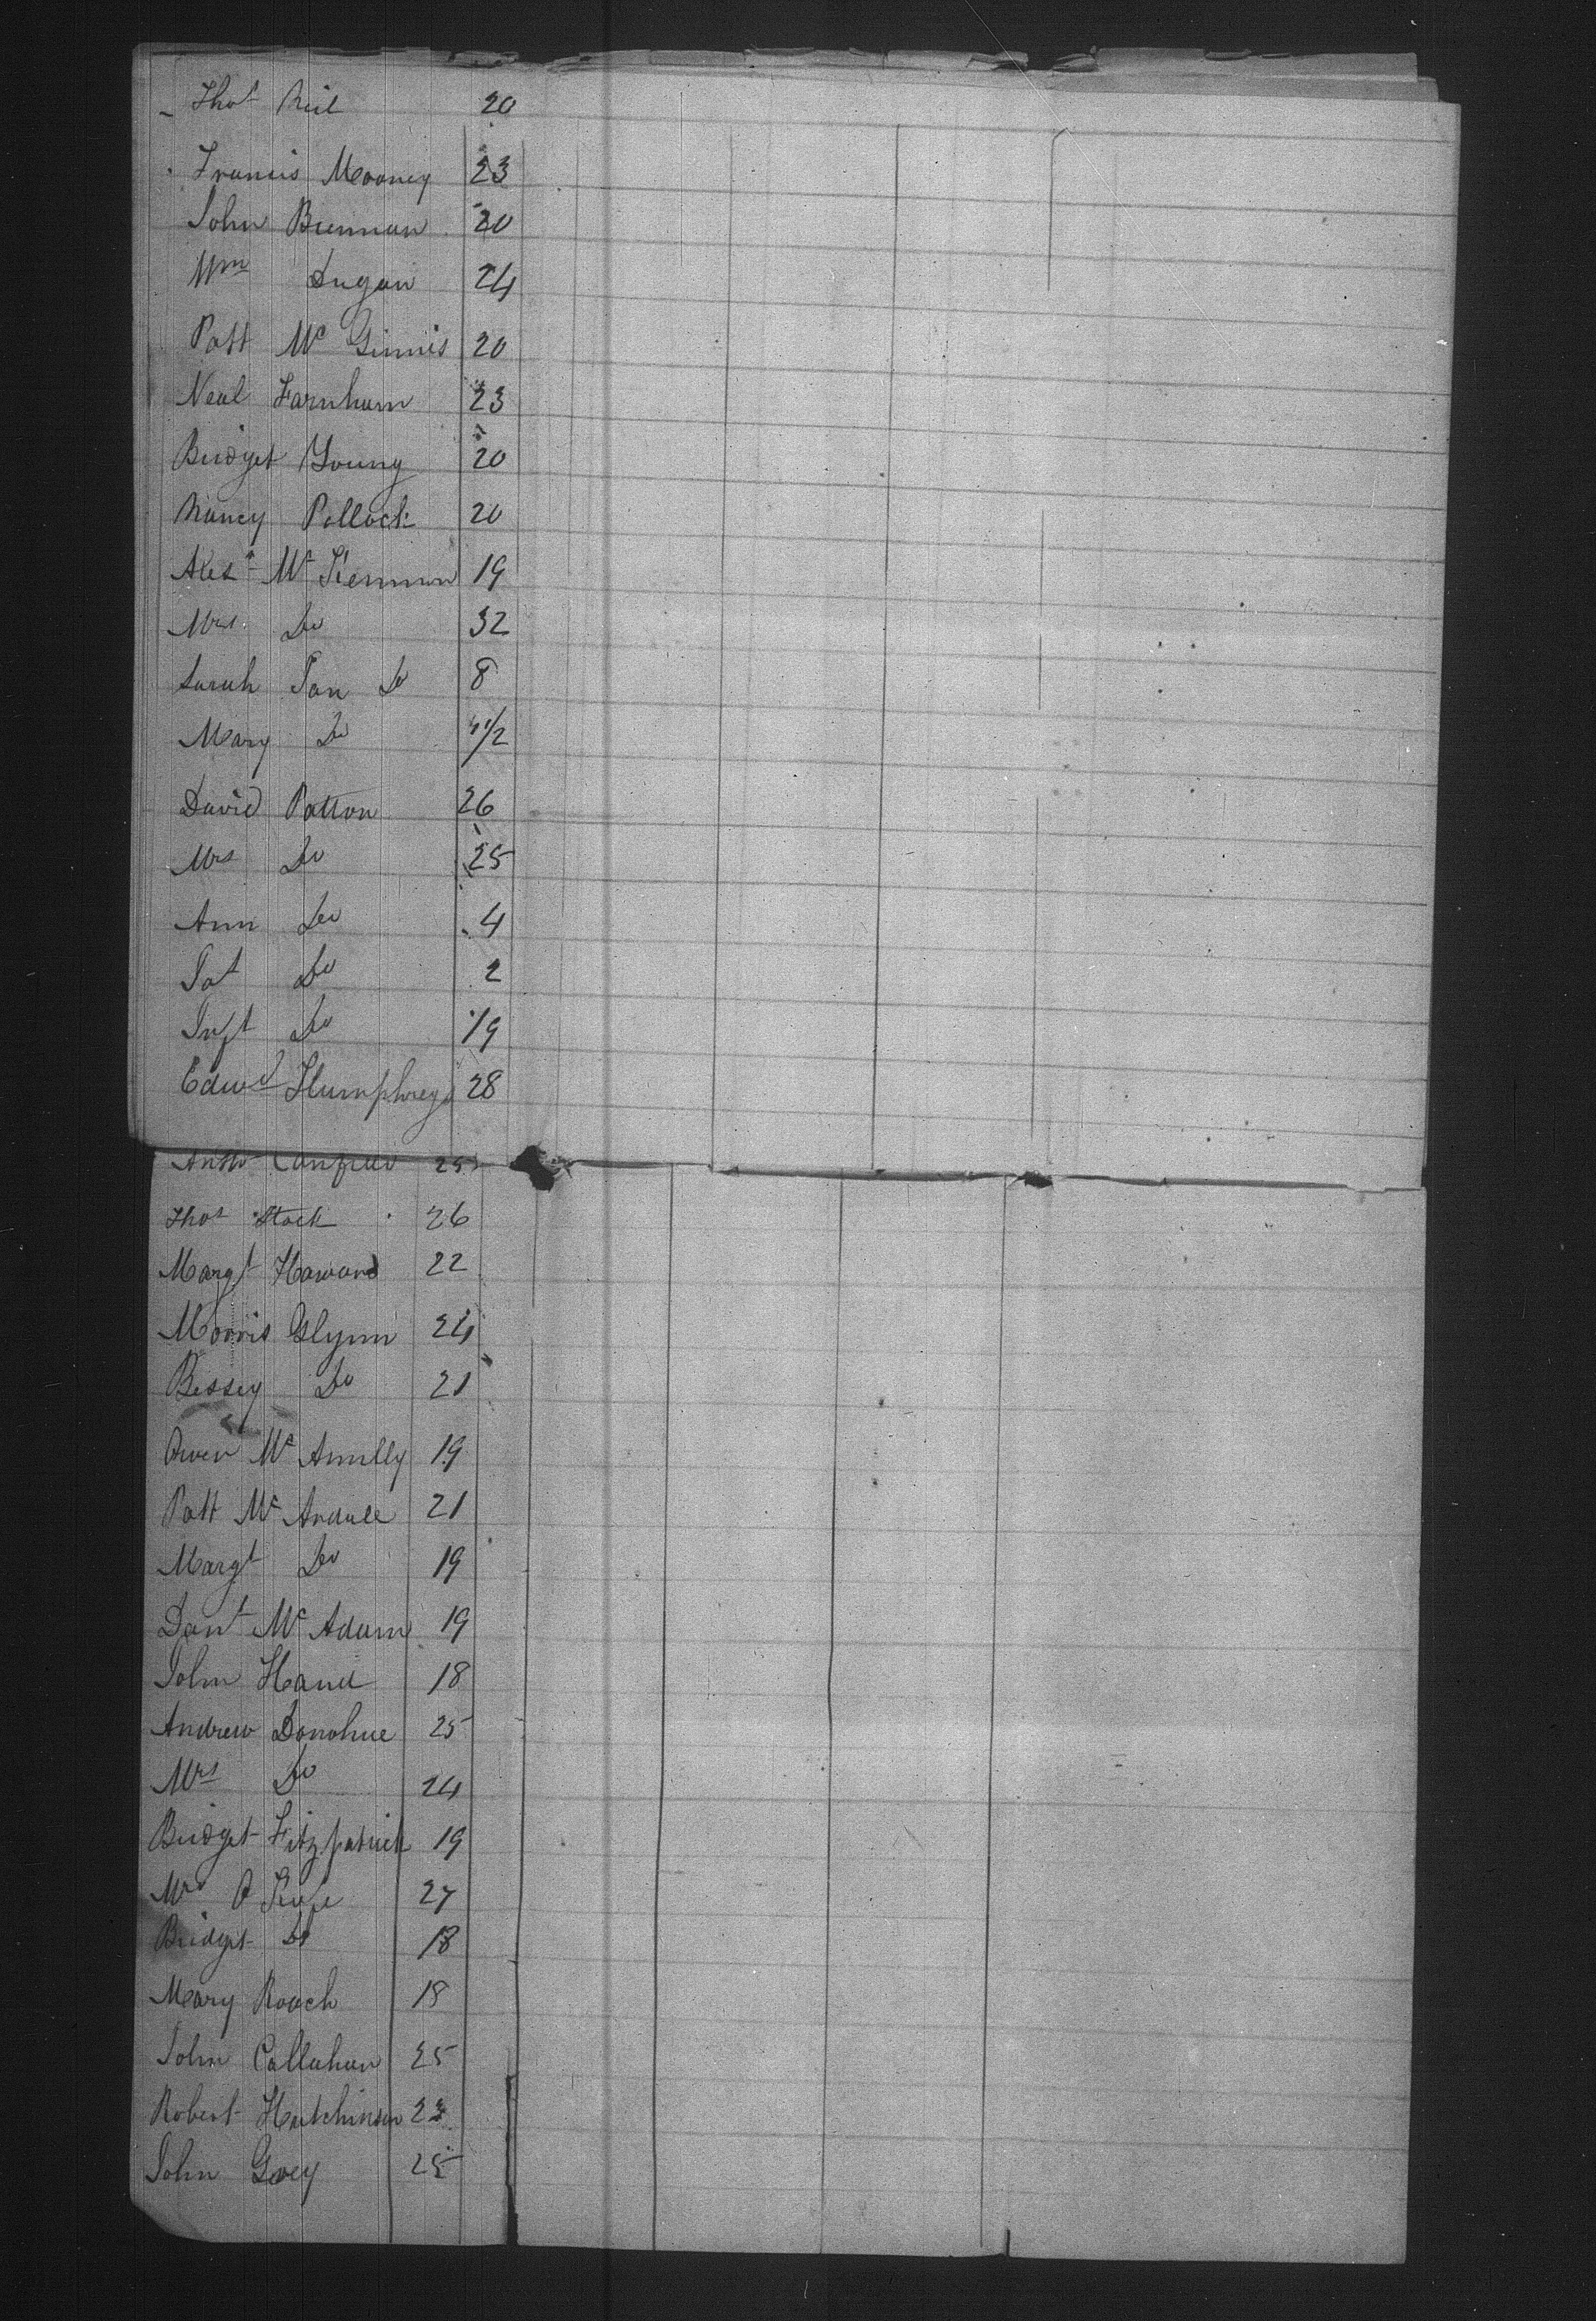 Thos Reil 20
Francis Mooney 23
John Brennan 20
Wm Dugan 24
Patt Mc Ginnis 20
Neal Farnham 23
Bridget Young 20
Nancy Pollock 20
Mc Kiernan 19
Mrs Do 32
Sarah Jan Do 8
Mary Do 1/2
David Patton 26
Mrs Do 25
Ann Do 4
Pat Do 2
Inft Do
Edwd Humphreys 28
25
Thos Stack 26
Margt Haward 22
Morris Glynn 24
Bessey Do 21
Owen Mc Anully 19
Patt Mc Ardule 21
Margt Do 19
Danl Mc Adam 19
John Hand 18
Andrew Donohue 25
Mrs Do 24
Bridget Fitzpatrick 19
Mrs O 27
Bridget Do 18
Mary Roach 18
John Callahan 25
Robert Hutchinson 23
John 25